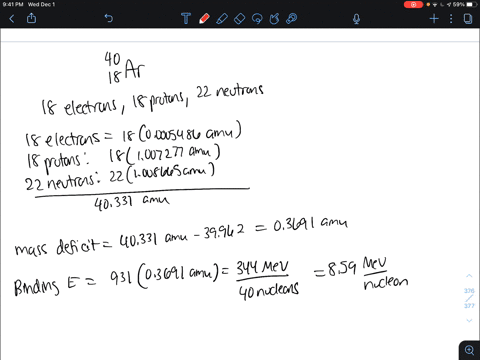 9:41 PM Wed Dec 1
59%
40
18 Ar
18 electrons, 18 protons, 22 neutrons
18 electrons = 18(0.0005486 amu)
18 protons: 18(1.007277 amu)
22 neutrons: 22(1.008665 amu)
40.331 amu
mass deficit = 40.331 amu - 39.962 = 0.3691 amu
Binding E = 931(0.3691 amu) = 344 MeV / 40 nucleons = 8.59 MeV / nucleon
376
/
377